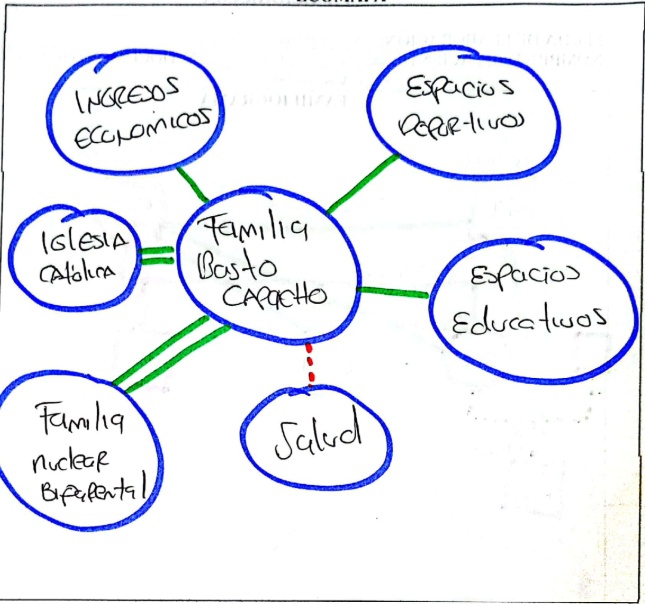 ECOMAPA
INGRESOS
ECONÓMICOS
Espacios
Deportivos
IGLESIA
Católica
Familia
Basto
CAPACHO
Espacios
Educativos
Familia
nuclear
Biparental
Salud